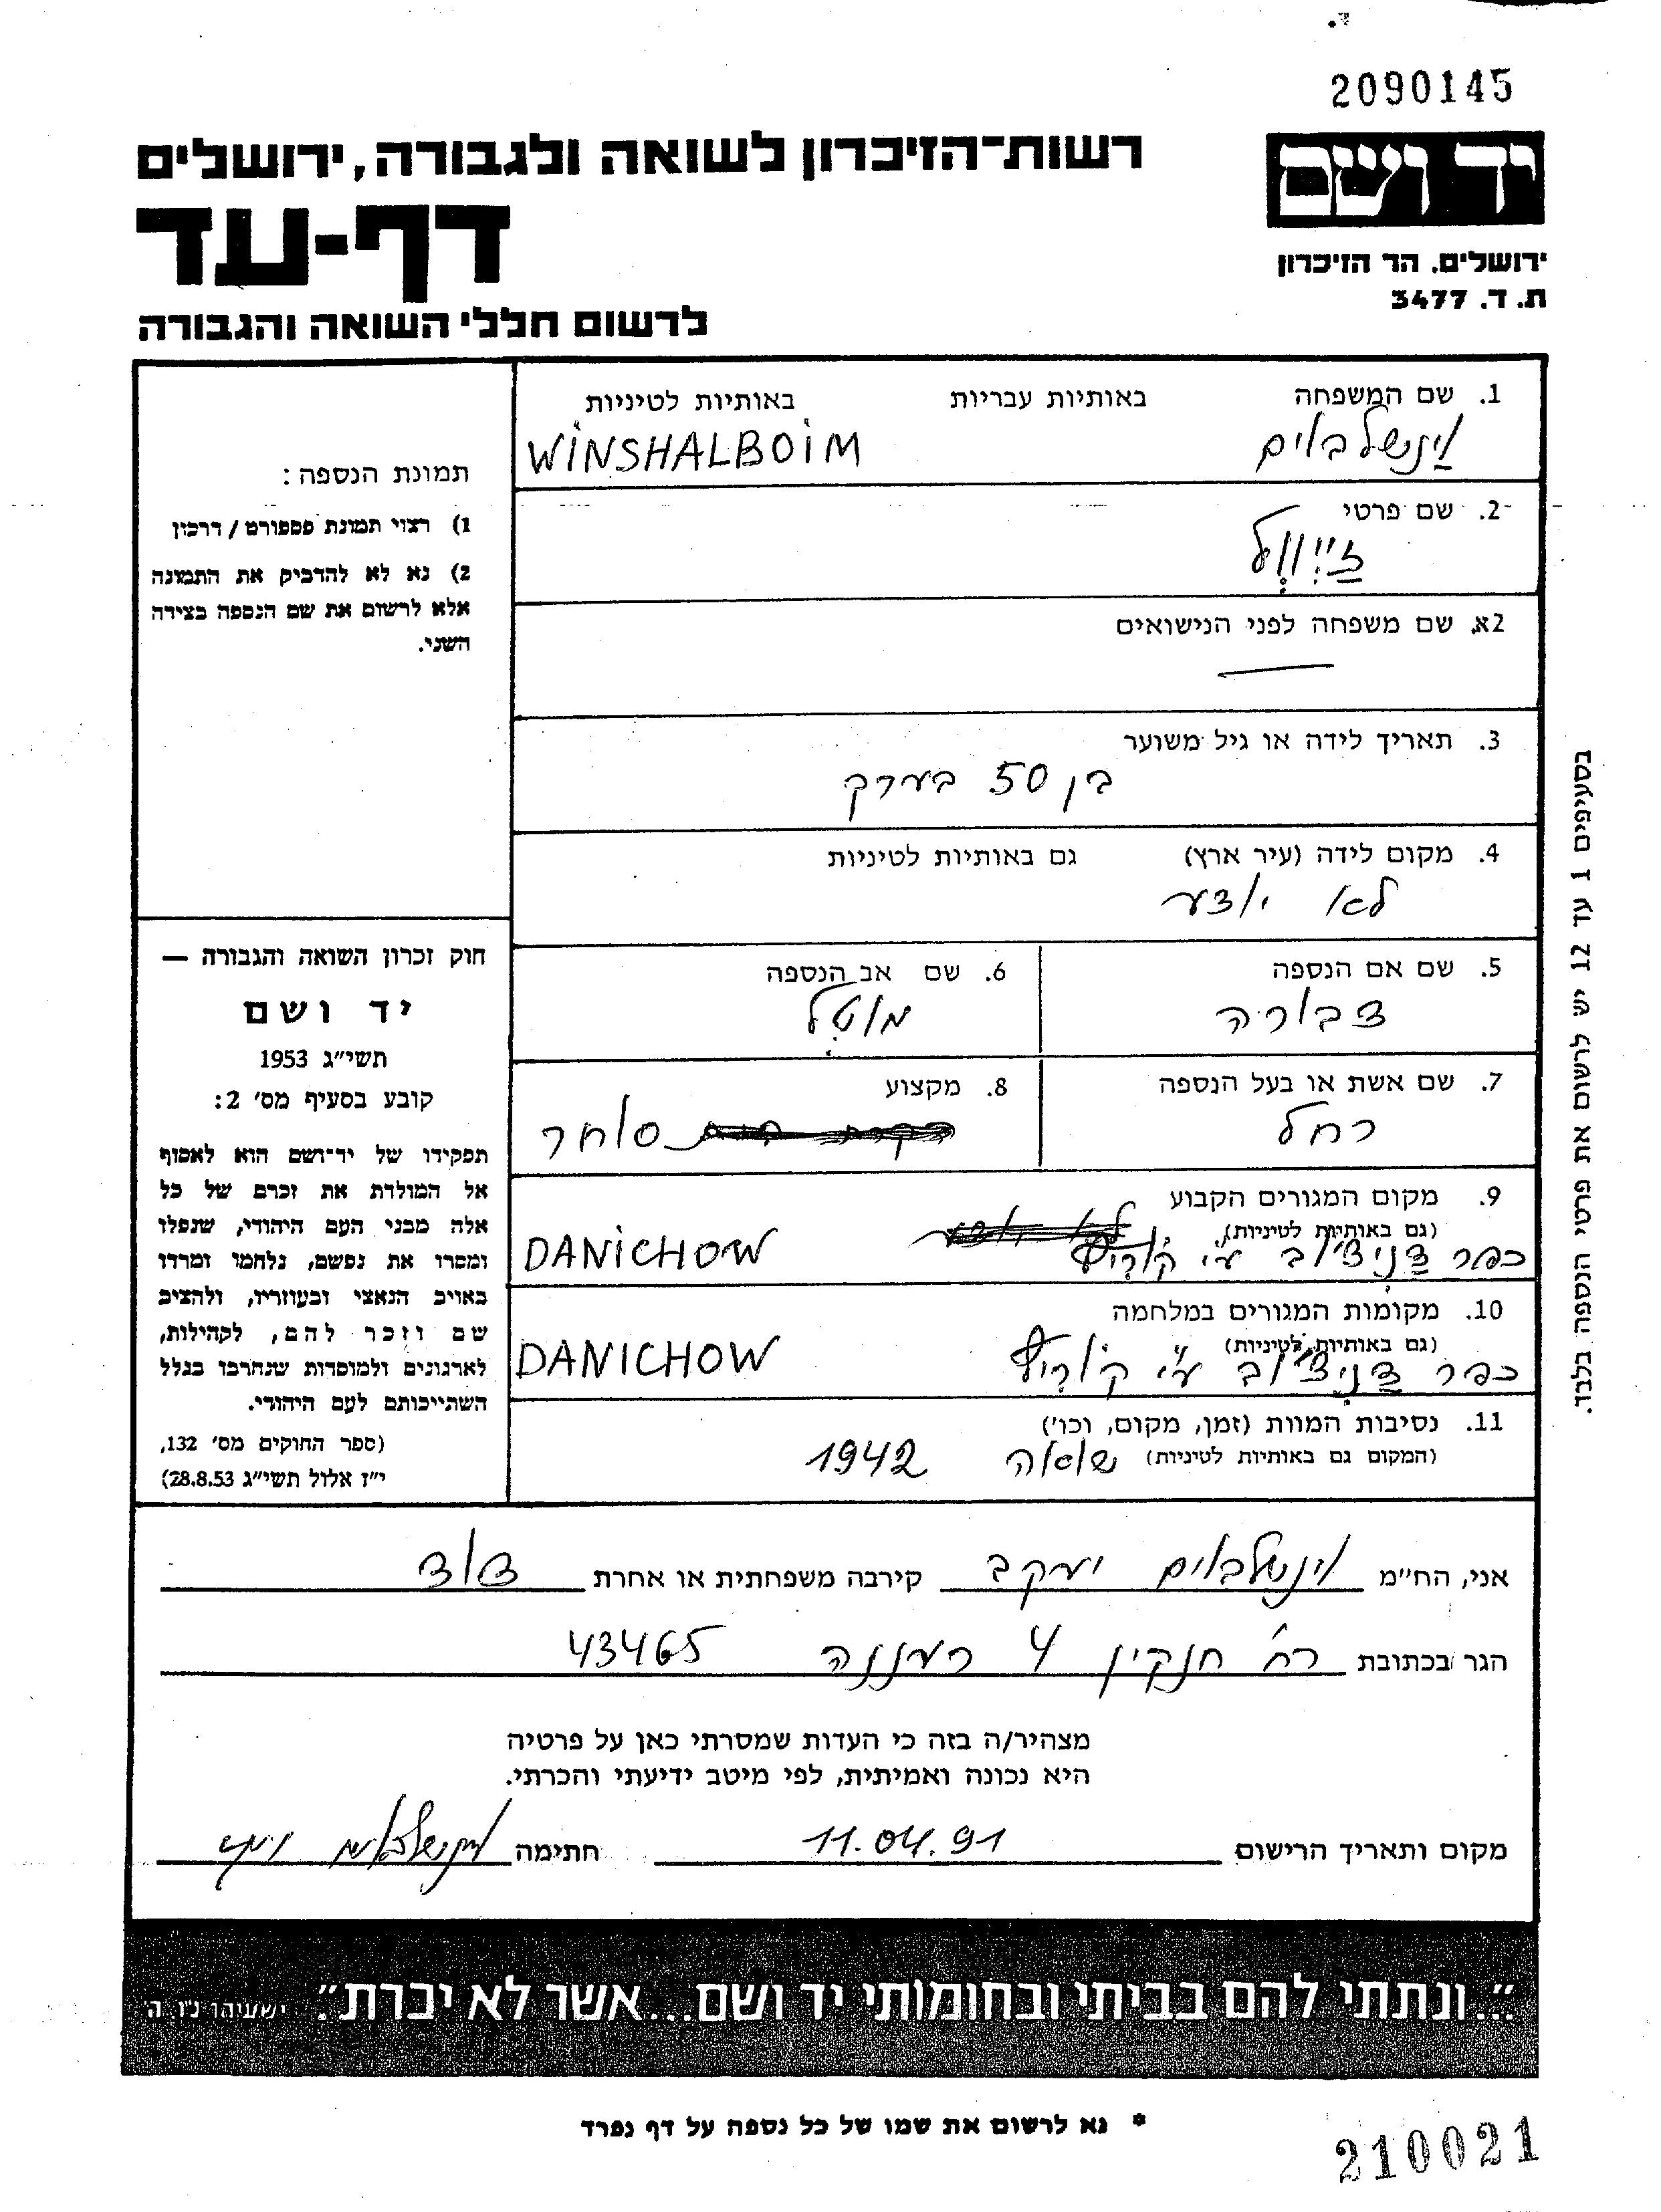 2090145
יד ושם
רשות־הזיכרון לשואה ולגבורה, ירושלים
דף-עד
ירושלים. הר הזיכרון
ת. ד. 3477
לרשום חללי השואה והגבורה
1. שם המשפחה באותיות עבריות באותיות לטיניות
וינשלבוים WINSHALBOIM
2. שם פרטי
זיוול
2א. שם משפחה לפני הנישואים
—
3. תאריך לידה או גיל משוער
בן 50 בערך
4. מקום לידה (עיר ארץ) גם באותיות לטיניות
לא יודע
5. שם אם הנספה 6. שם אב הנספה
דבורה מוטל
7. שם אשת או בעל הנספה 8. מקצוע
רחל סוחר
9. מקום המגורים הקבוע
(גם באותיות לטיניות)
כפר דניצ'וב ע"י DANICHOW
10. מקומות המגורים במלחמה
(גם באותיות לטיניות)
כפר דניצ'וב ע"י DANICHOW
11. נסיבות המוות (זמן, מקום, וכו')
(המקום גם באותיות לטיניות) שואה 1942
תמונת הנספה:
1) רצוי תמונת פספורט / דרכון
2) נא לא להדביק את התמונה
אלא לרשום את שם הנספה בצידה
השני.
חוק זכרון השואה והגבורה —
יד ושם
תשי"ג 1953
קובע בסעיף מס' 2:
תפקידו של יד־ושם הוא לאסוף
אל המולדת את זכרם של כל
אלה מבני העם היהודי, שנפלו
ומסרו את נפשם, נלחמו ומרדו
באויב הנאצי ובעוזריו, ולהציב
שם וזכר להם, לקהילות,
לארגונים ולמוסדות שנחרבו בגלל
השתייכותם לעם היהודי.
(ספר החוקים מס' 132,
י"ז אלול תשי"ג 28.8.53)
בסעיפים 1 עד 12 יש לרשום את פרטי הנספה בלבד.
אני, הח"מ וינשלבוים יעקב קירבה משפחתית או אחרת דוד
הגר בכתובת רח' חנקין 4 רעננה 43465
מצהיר/ה בזה כי העדות שמסרתי כאן על פרטיה
היא נכונה ואמיתית, לפי מיטב ידיעתי והכרתי.
מקום ותאריך הרישום 11.04.91 חתימה וינשלבוים
"...ונתתי להם בביתי ובחומותי יד ושם...אשר לא יכרת". ישעיהו נו ה
* נא לרשום את שמו של כל נספה על דף נפרד
210021